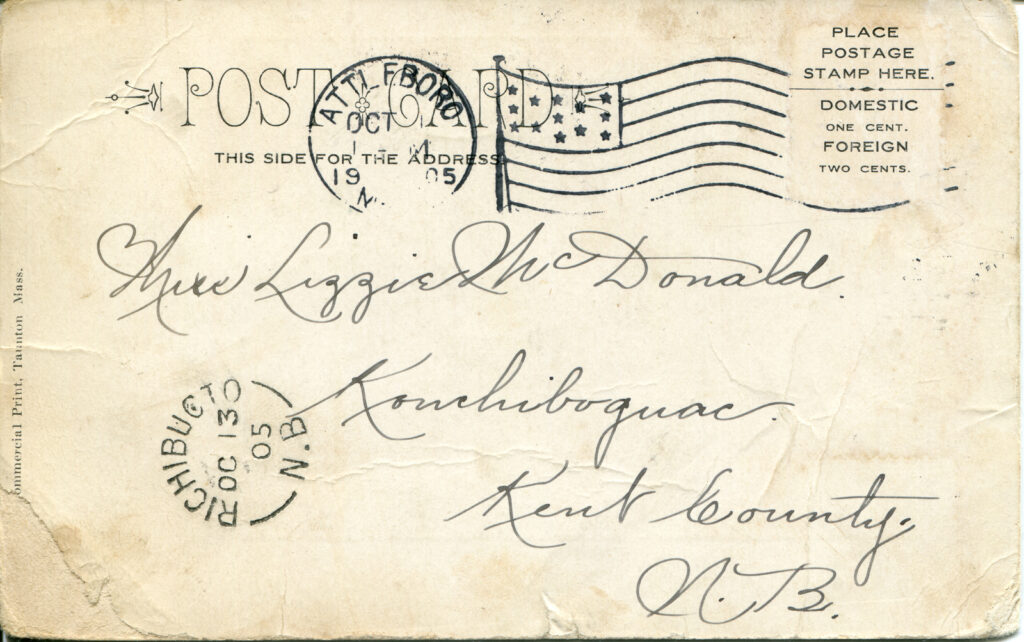 POST CARD
THIS SIDE FOR THE ADDRESS
PLACE
POSTAGE
STAMP HERE.
DOMESTIC
ONE CENT.
FOREIGN
TWO CENTS.
ATTLEBORO
OCT
19 05
Miss Lizzie McDonald
Konchiboguac.
Kent County.
N.B.
RICHIBUCTO
OC 13
05
N.B
ommercial Print, Taunton Mass.